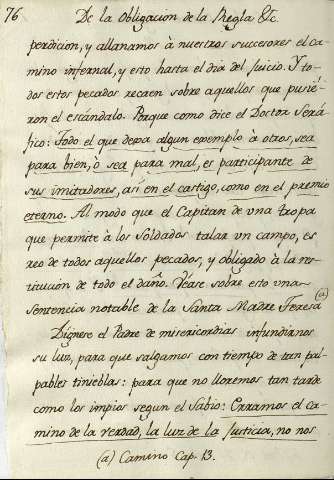 76
De la Obligacion de la Regla &c.
perdicion, y allanamos à nuestros successores el ca-
mino infernal, y esto hasta el dia del Juicio. Y to-
dos estos pecados recaen sobre aquellos que pusie-
ron el escándalo. Porque como dice el Doctor Será-
fico: Todo el que dexa algun exemplo à otros, sea
para bien, ò sea para mal, es participante de
sus imitadores, así en el castigo, como en el premio
eterno. Al modo que el Capitan de vna tropa
que permite à los Soldados talar vn campo, es
reo de todos aquellos pecados, y obligado à la res-
titucion de todo el daño. Véase sobre esto vna
sentencia notable de la Santa Madre Teresa (a)
Dignese el Padre de misericordias infundirnos
su luz, para que salgamos con tiempo de tan pal-
pables tinieblas: para que no lloremos tan tarde
como los impios segun el Sabio: Erramos el ca-
mino de la verdad, la luz de la Justicia, no nos
(a) Camino Cap. 13.